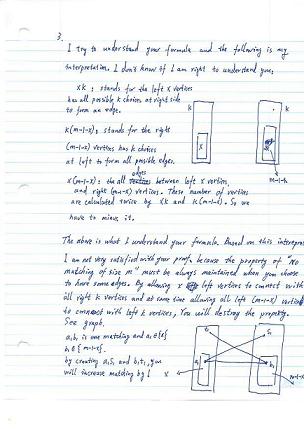 3.
I try to understand your formula and the following is my
interpretation. I don't know if I am right to understand you,
xk : stands for the left x vertices
has all possible k choices at right side
to form an edge.
k k
k(m-1-x); stands for the right
(m-1-x) vertices has k choices
at left to form all possible edges.
x
m-1-x
x(m-1-x): the all edges between left x vertices
and right (m-1-x) vertices. These number of vertices
are calculated twice by xk and k(m-1-x). So we
have to minus it.
The above is what I understand your formula. Based on this interpre
I am not very satisfied with your prof. because the property of "No
matching of size m" must be always maintained when you choose
to have some edges. By allowing x left vertices to connect with
all right k vertices and at same time allowing all left (m-1-x) vertic
to connect with left k vertices, You will destroy the property.
See graph.
a,b, is one matching and
by creating and you
will increase matching by 1
x
m-1-x